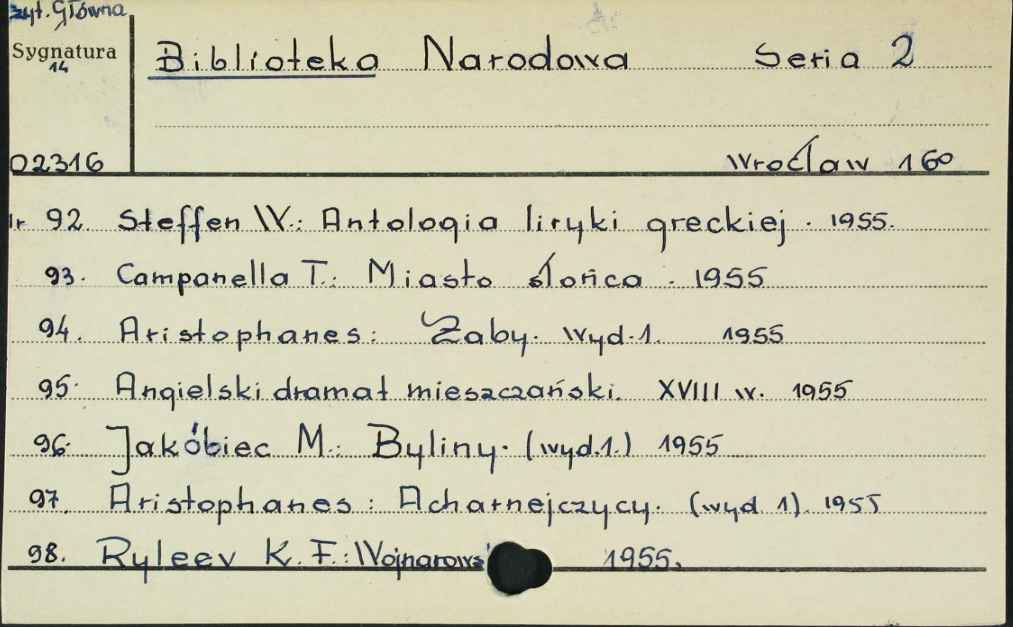 Czyt. Główna
Sygnatura
14
02316
Biblioteka Narodowa Seria 2
Wrocław 160
Nr 92. Steffen W.: Antologia liryki greckiej. 1955.
93. Campanella T.: Miasto słońca. 1955
94. Aristophanes: Żaby. wyd. 1. 1955
95. Angielski dramat mieszczański. XVIII w. 1955
96. Jakóbiec M.: Byliny. (wyd. 1.) 1955
97. Aristophanes: Acharnejczycy. (wyd 1). 1955
98. Ryleev K. F.: Wojnarows 1955.